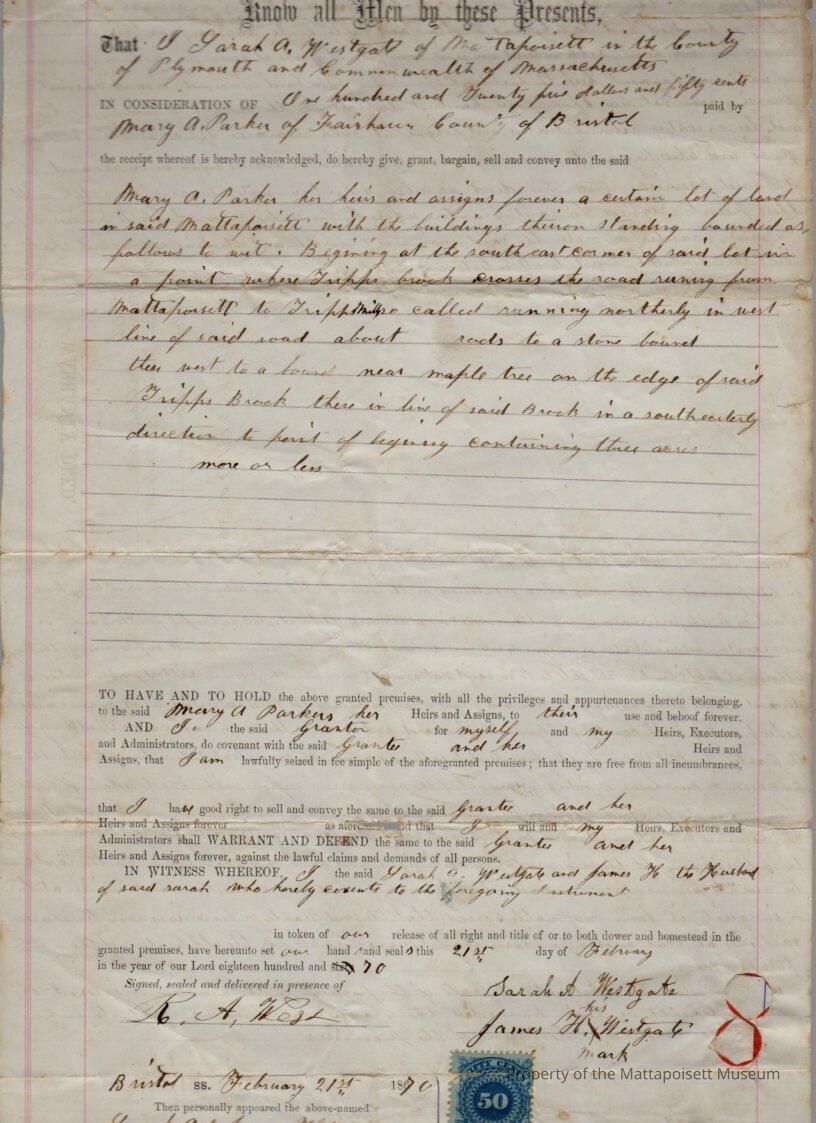 Know all Men by these Presents,
That I Sarah A. Westgate of Mattapoisett in the County
of Plymouth and Commonwealth of Massachusetts
IN CONSIDERATION OF One hundred and Twenty five dollars and fifty cents
paid by
Mary A. Parker of Fairhaven County of Bristol
the receipt whereof is hereby acknowledged, do hereby give, grant, bargain, sell and convey unto the said
Mary A. Parker her heirs and assigns forever a certain lot of land
in said Mattapoisett with the buildings theiron standing bounded as
follows to wit: Begining at the south east corner of said lot in
a point where Tripps brook crosses the road runing from
Mattapoisett to Tripp Mills so called running northerly in west
line of said road about rods to a stone bound
then west to a bound near maple tree on the edge of said
Tripps Brook thene in line of said Brook in a southeasterly
direction to point of begining containing three acres
more or less
TO HAVE AND TO HOLD the above granted premises, with all the privileges and appurtenances thereto belonging,
to the said Mary A Parkers her Heirs and Assigns, to their use and behoof forever.
AND I the said Grantor for myself and my Heirs, Executors,
and Administrators, do covenant with the said Grantee and her Heirs and
Assigns, that I am lawfully seized in fee simple of the aforegranted premises; that they are free from all incumbrances,
that I have good right to sell and convey the same to the said Grantee and her
Heirs and Assigns forever as and that I will and my Heirs, Executors and
Administrators shall WARRANT AND DEFEND the same to the said Grantee and her
Heirs and Assigns forever, against the lawful claims and demands of all persons.
IN WITNESS WHEREOF, I the said Sarah A. Westgate and James H the Husband
of said sarah who hereby to the foregoing Instrument
in token of our release of all right and title of or to both dower and homestead in the
granted premises, have hereunto set our hands and seals this 21st day of February
in the year of our Lord eighteen hundred and 70
Signed, sealed and delivered in presence of
Sarah A Westgate
R. A. West
his
James H. X Westgate
mark
Bristol ss. February 21st 1870
50
Property of the Mattapoisett Museum
Then personally appeared the above-named